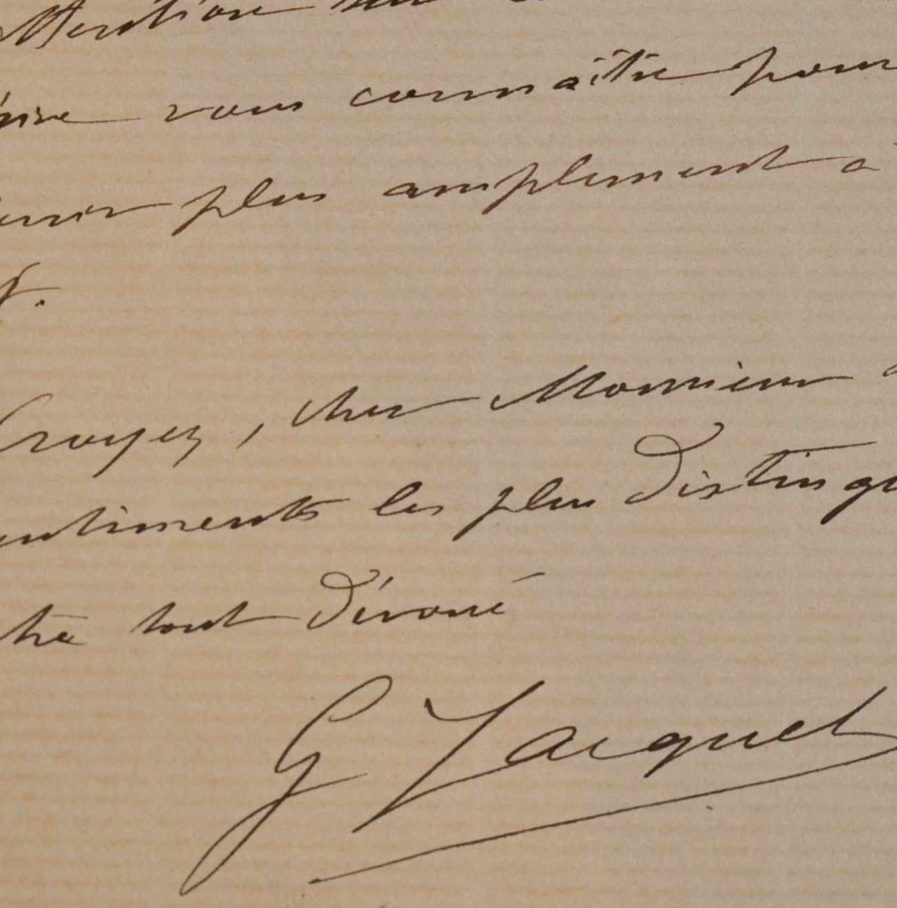 attention sur
vous connaître pour
plus amplement à
Croyez, cher Monsieur
sentiments les plus distingu
tre tout dévoué
G Jacquet